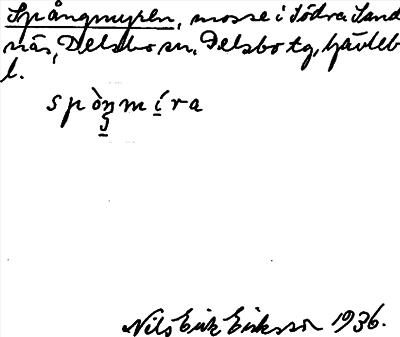 Spångmyren, mosse i Södra Sand
näs, Delsbo sn, Delsbo tg, Gävleb
l.
spòŋmíra
Nils Erik Eriksson 1936.